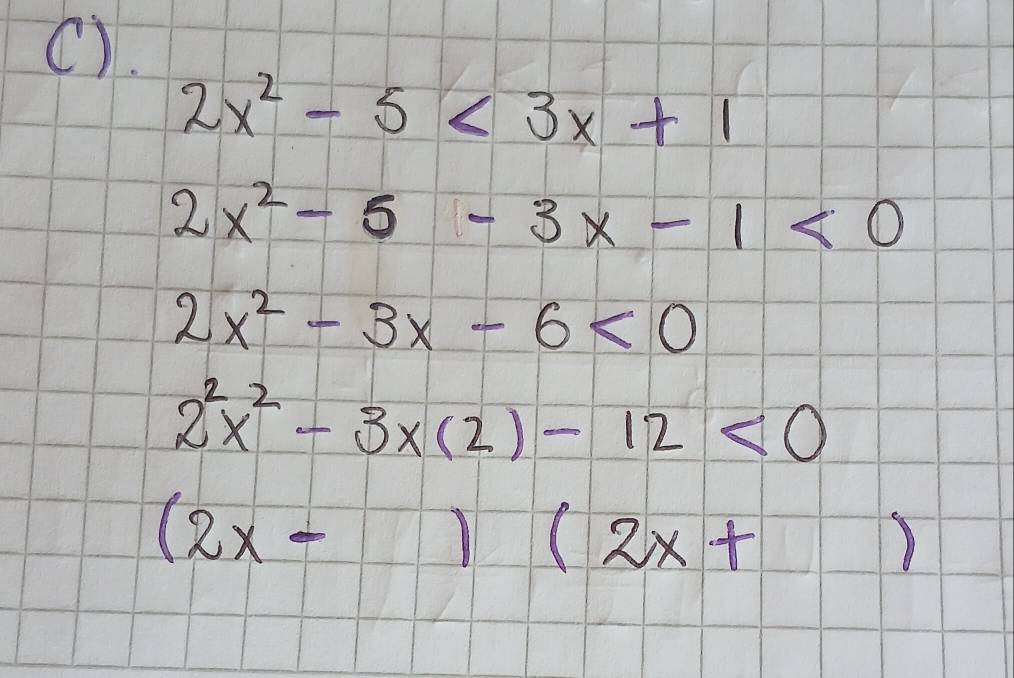 C).
2x² - 5 < 3x + 1
2x² - 5 - 3x - 1 < 0
2x² - 3x - 6 < 0
2²x² - 3x(2) - 12 < 0
(2x -   ) (2x +   )